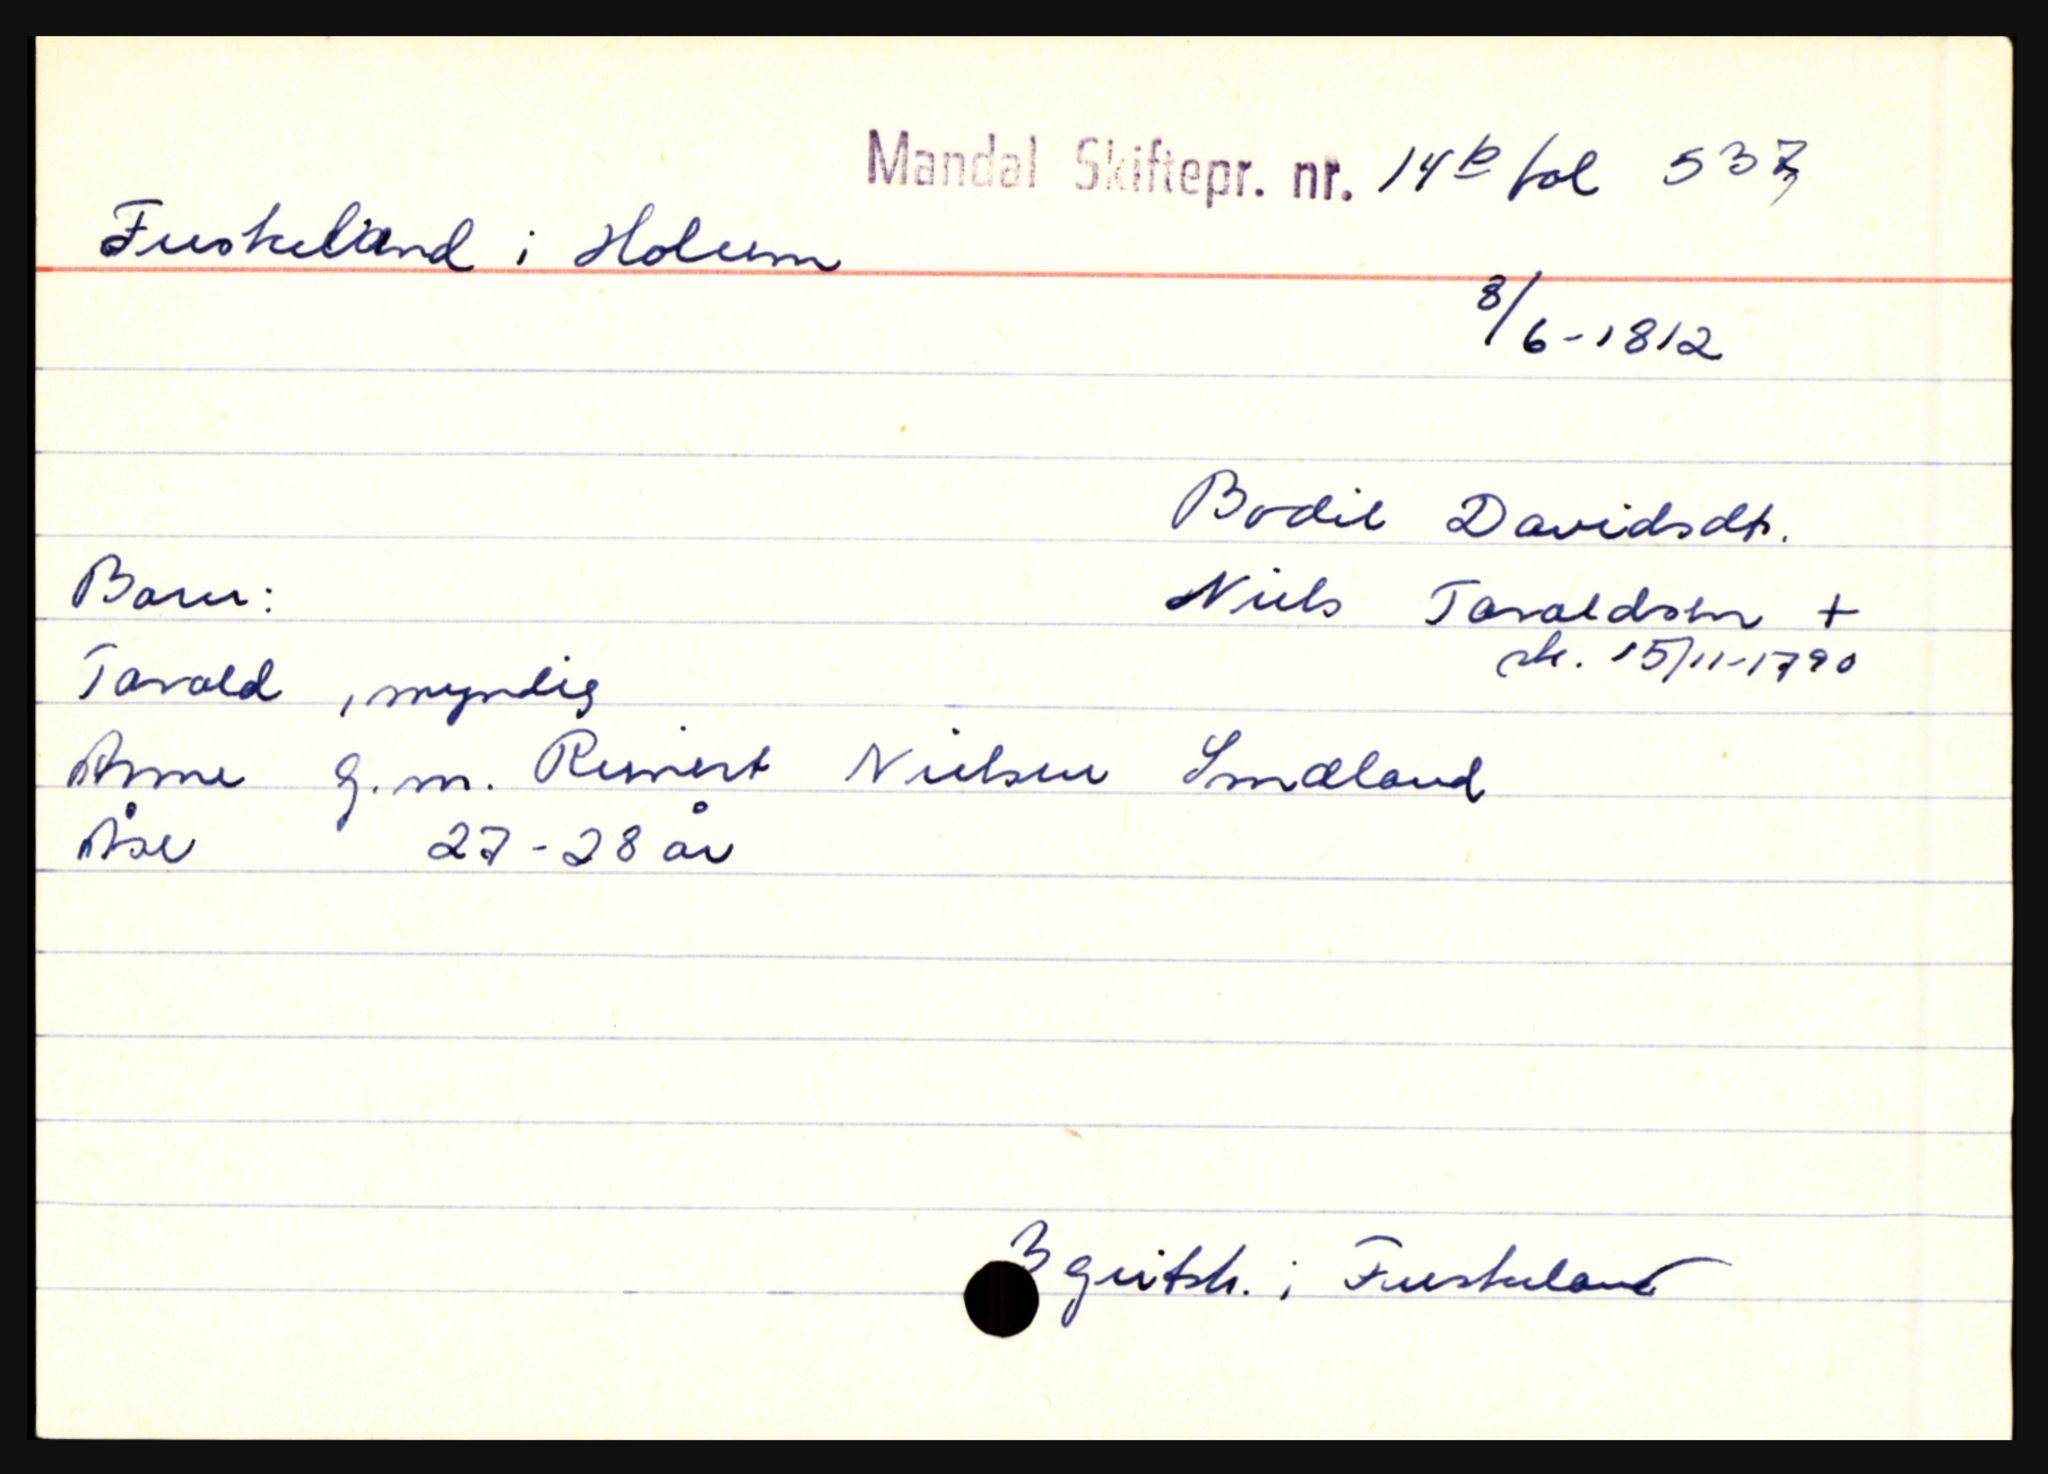 Mandal Skiftepr. nr. 14b fol 537
Fuskeland i Holum
8/6-1812
Bodil Davidsdt.
Barn:
Niels Taraldsen +
sk. 15/11-1790
Tarald, myndig
Anne g.m. Reinert Nielsen Smæland
Åse 27-28 år
3 geitsk. i Fuskeland